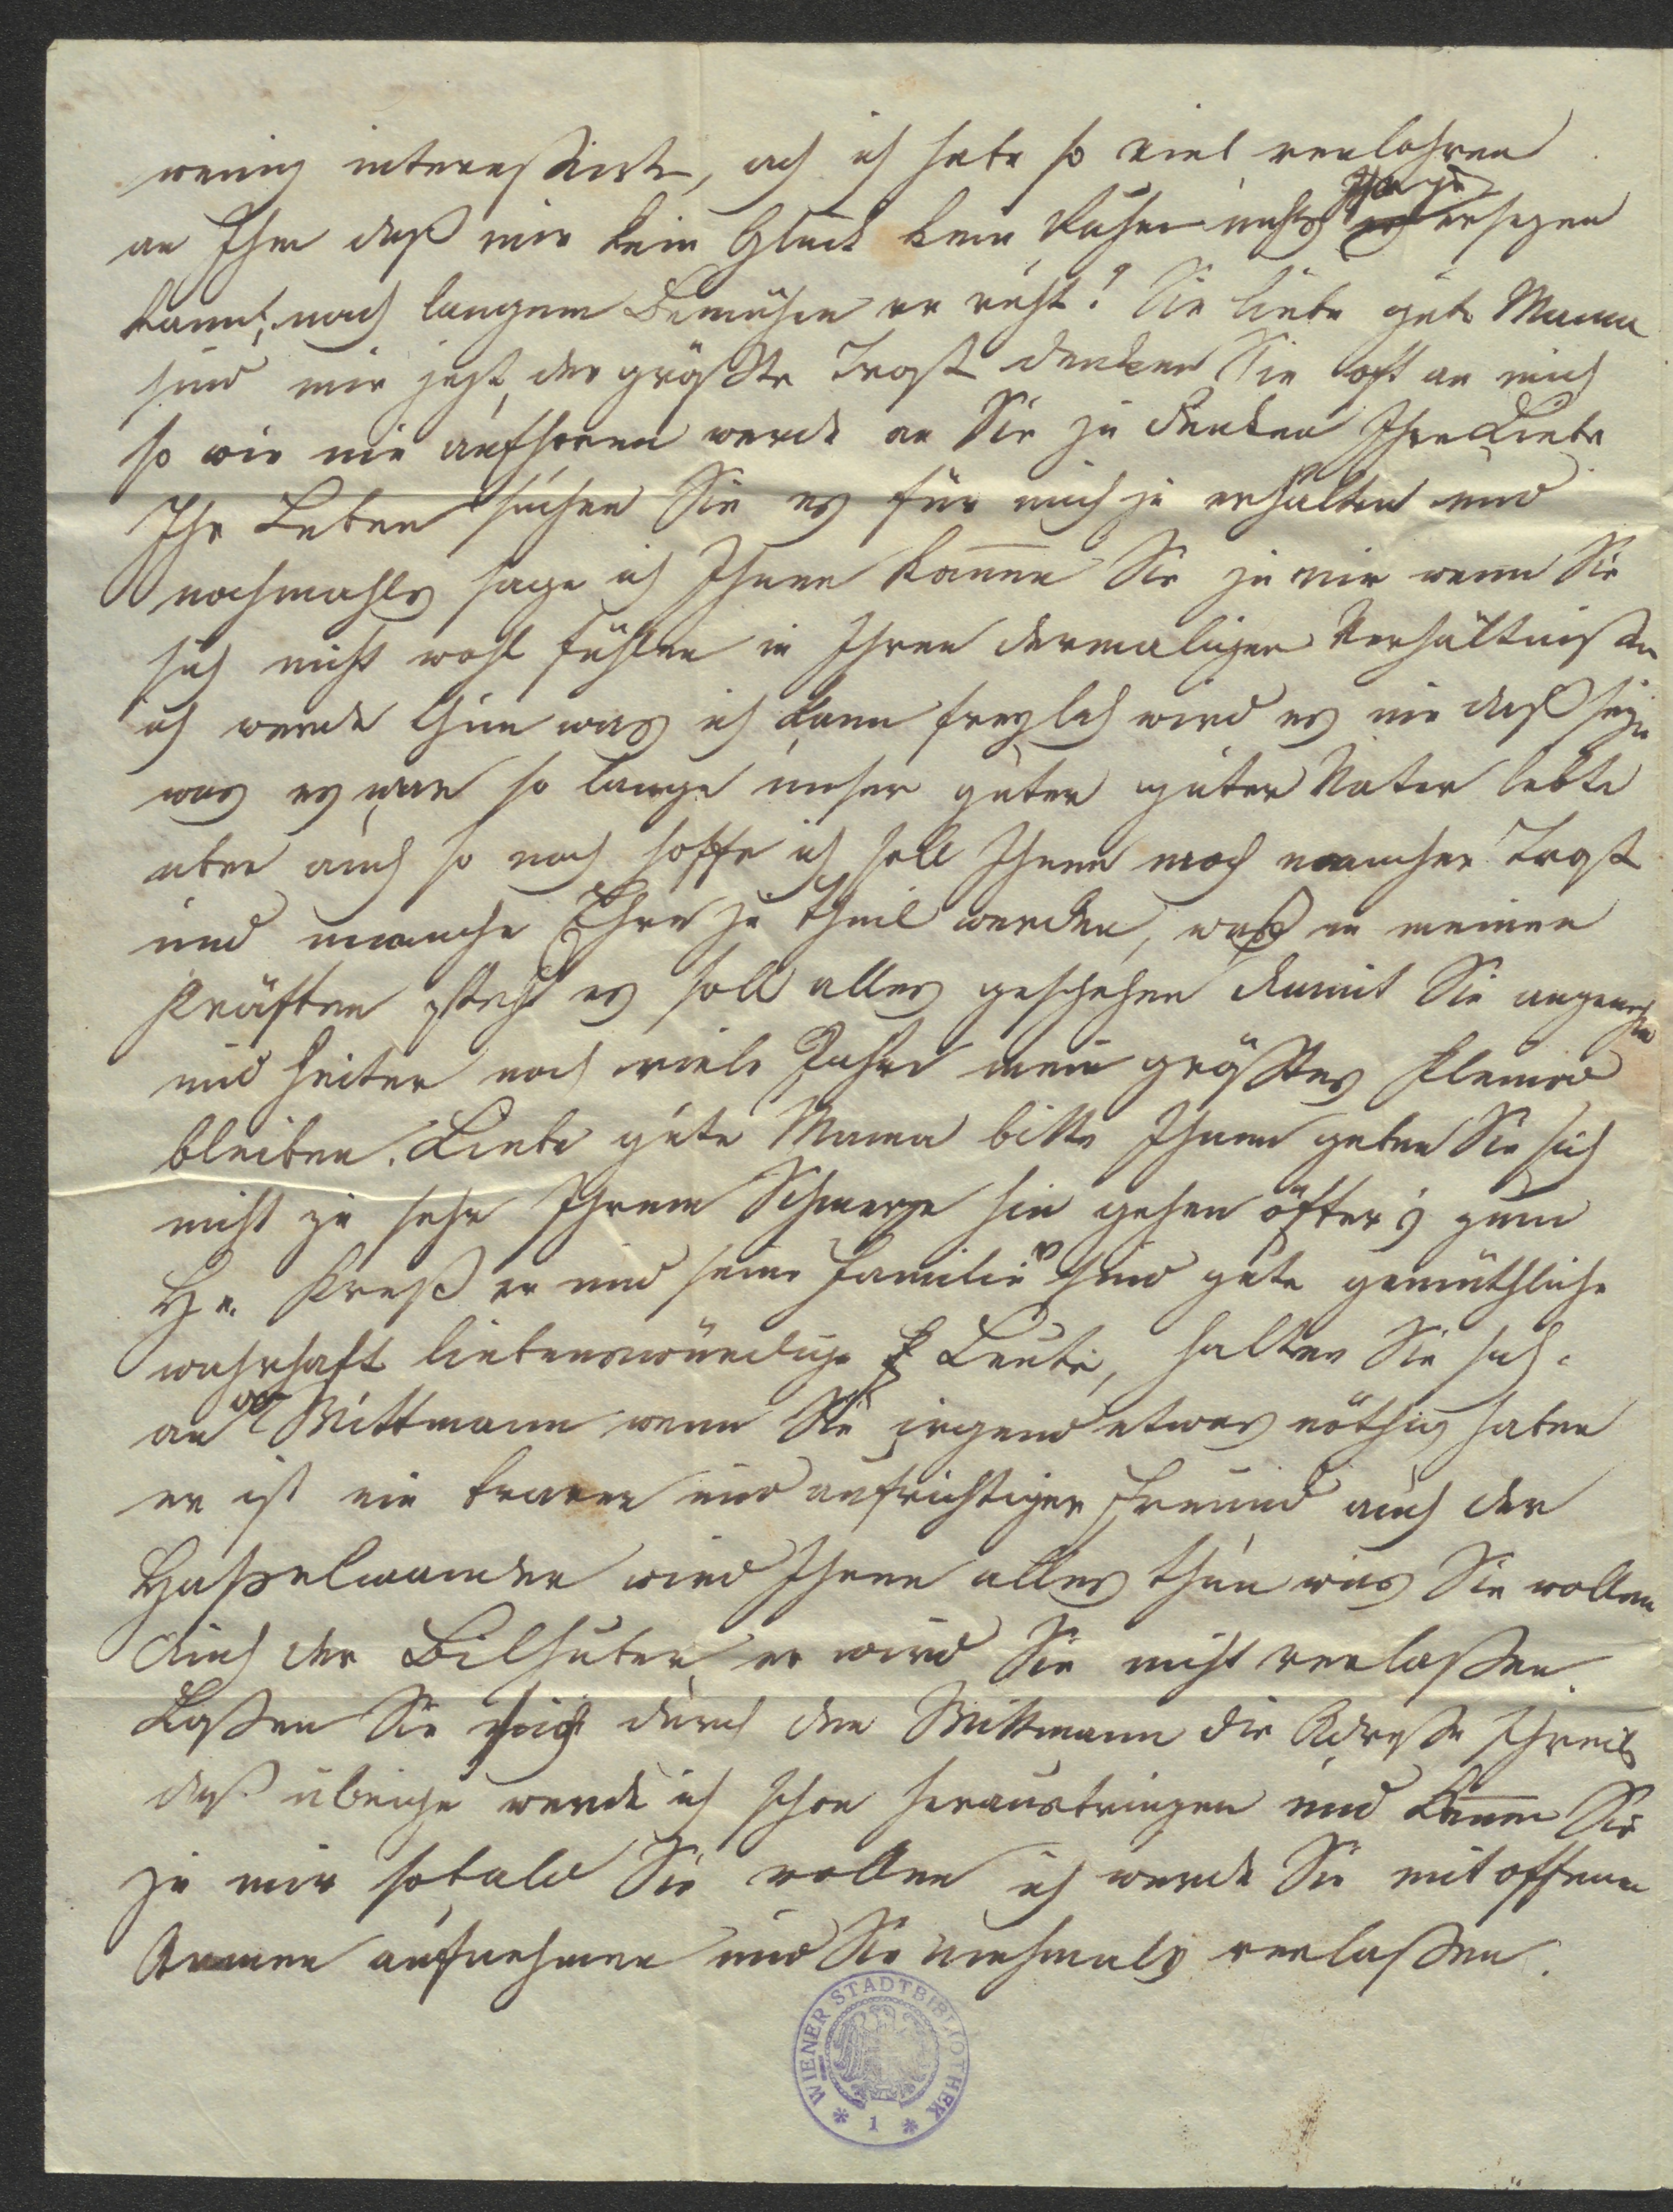 wenig interessirt, ach ich habe so viel verlohren
an Ihm daß mir kein Glück kein Ruhm nichts ersezen
kann, nach langem Bemühen er ruht! Sie liebe gute Mama
sind mir jezt der größte Trost denken Sie oft an mich
so wie nie aufhören werde an Sie zu denken Ihre Liebe
Ihr Leben suchen Sie es für mich zu erhalten und
nochmahls sage ich Ihnen kom̅en Sie zu mir wenn Sie
sich nicht wohl fühlen in Ihren dermaligen Verhältnißen
ich werde thun was ich kann freylich wird es nie daß seyn
was es war so lange unser guter guter Vater lebte
aber auch so noch hoffe ich soll Ihnen noch mancher Trost
und manche Ehre zu theil werden, was in meinen
Kräften steht es soll alles geschehen damit Sie angenehm
und heiter noch viele Jahre mein größtes Kleinod
bleiben. Liebe gute Mama bitte Ihnen geben Sie sich
nicht zu sehr Ihrem Schmerze hin gehen öfters zum
Hr. Preß er und seine Familie sind gute gemüthliche
wahrhaft liebenswürdige Leute, halten Sie sich
an Wittmann wenn Sie irgend etwas nöthig haben
er ist ein braver und aufrichtiger Freund auch der
Haßelwander wird Ihnen alles thun was Sie wollen
Auch der Bilhuber er wird Sie nicht verlaßen.
Laßen Sie durch den Wittmann die Adreße schreiben
daß übrige werde ich schon herausbringen und kom̅en Sie
zu mir sobald Sie wollen ich werde Sie mit offenen
Armen aufnehmen und Sie niehmals verlaßen.
WIENER STADTBIBLIOTHEK
* 1 *